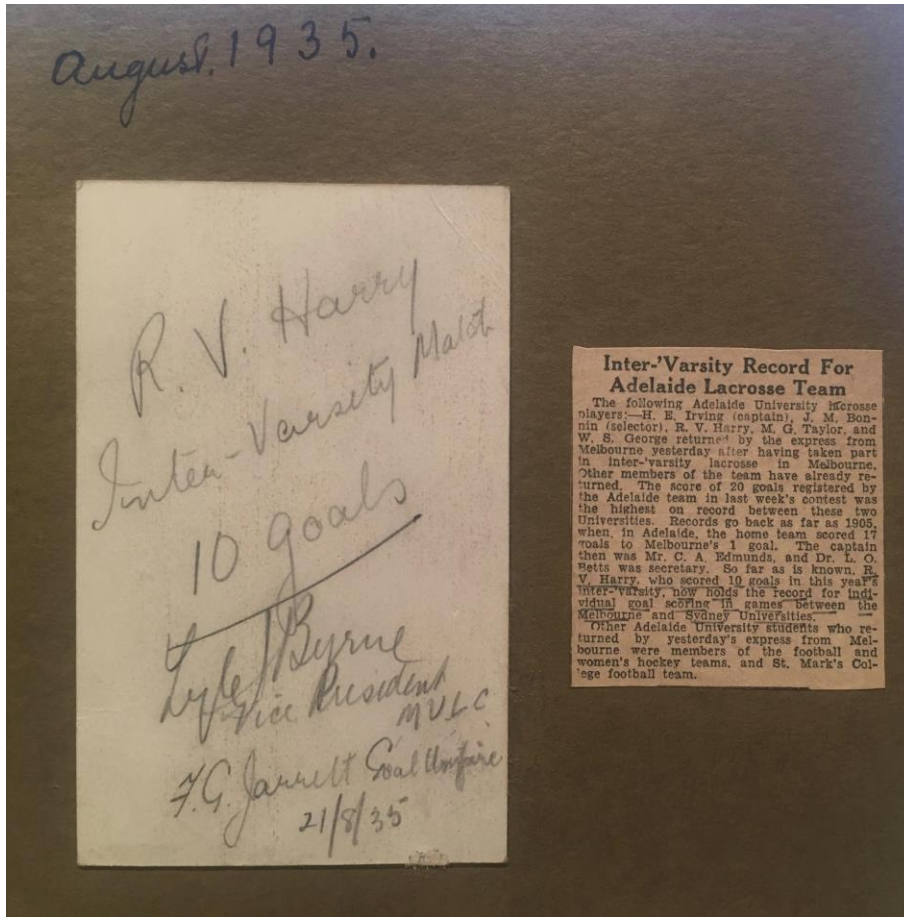 August. 1935.
R. V. Harry
Inter-Varsity Match
10 goals
Lyle J Byrne
Vice President
M V L C
F. G. Jarrett Goal Umpire
21/8/35
Inter-'Varsity Record For
Adelaide Lacrosse Team
The following Adelaide University lacrosse
players:—H. E. Irving (captain), J. M. Bon-
nin (selector), R. V. Harry, M. G. Taylor, and
W. S. George returned by the express from
Melbourne yesterday after having taken part
in inter-'varsity lacrosse in Melbourne.
Other members of the team have already re-
turned. The score of 20 goals registered by
the Adelaide team in last week's contest was
the highest on record between these two
Universities. Records go back as far as 1905,
when, in Adelaide, the home team scored 17
goals to Melbourne's 1 goal. The captain
then was Mr. C. A. Edmunds, and Dr. L. O.
Betts was secretary. So far as is known, R.
V. Harry, who scored 10 goals in this year's
inter-'varsity, now holds the record for indi-
vidual goal scoring in games between the
Melbourne and Sydney Universities.
Other Adelaide University students who re-
turned by yesterday's express from Mel-
bourne were members of the football and
women's hockey teams, and St. Mark's Col-
lege football team.